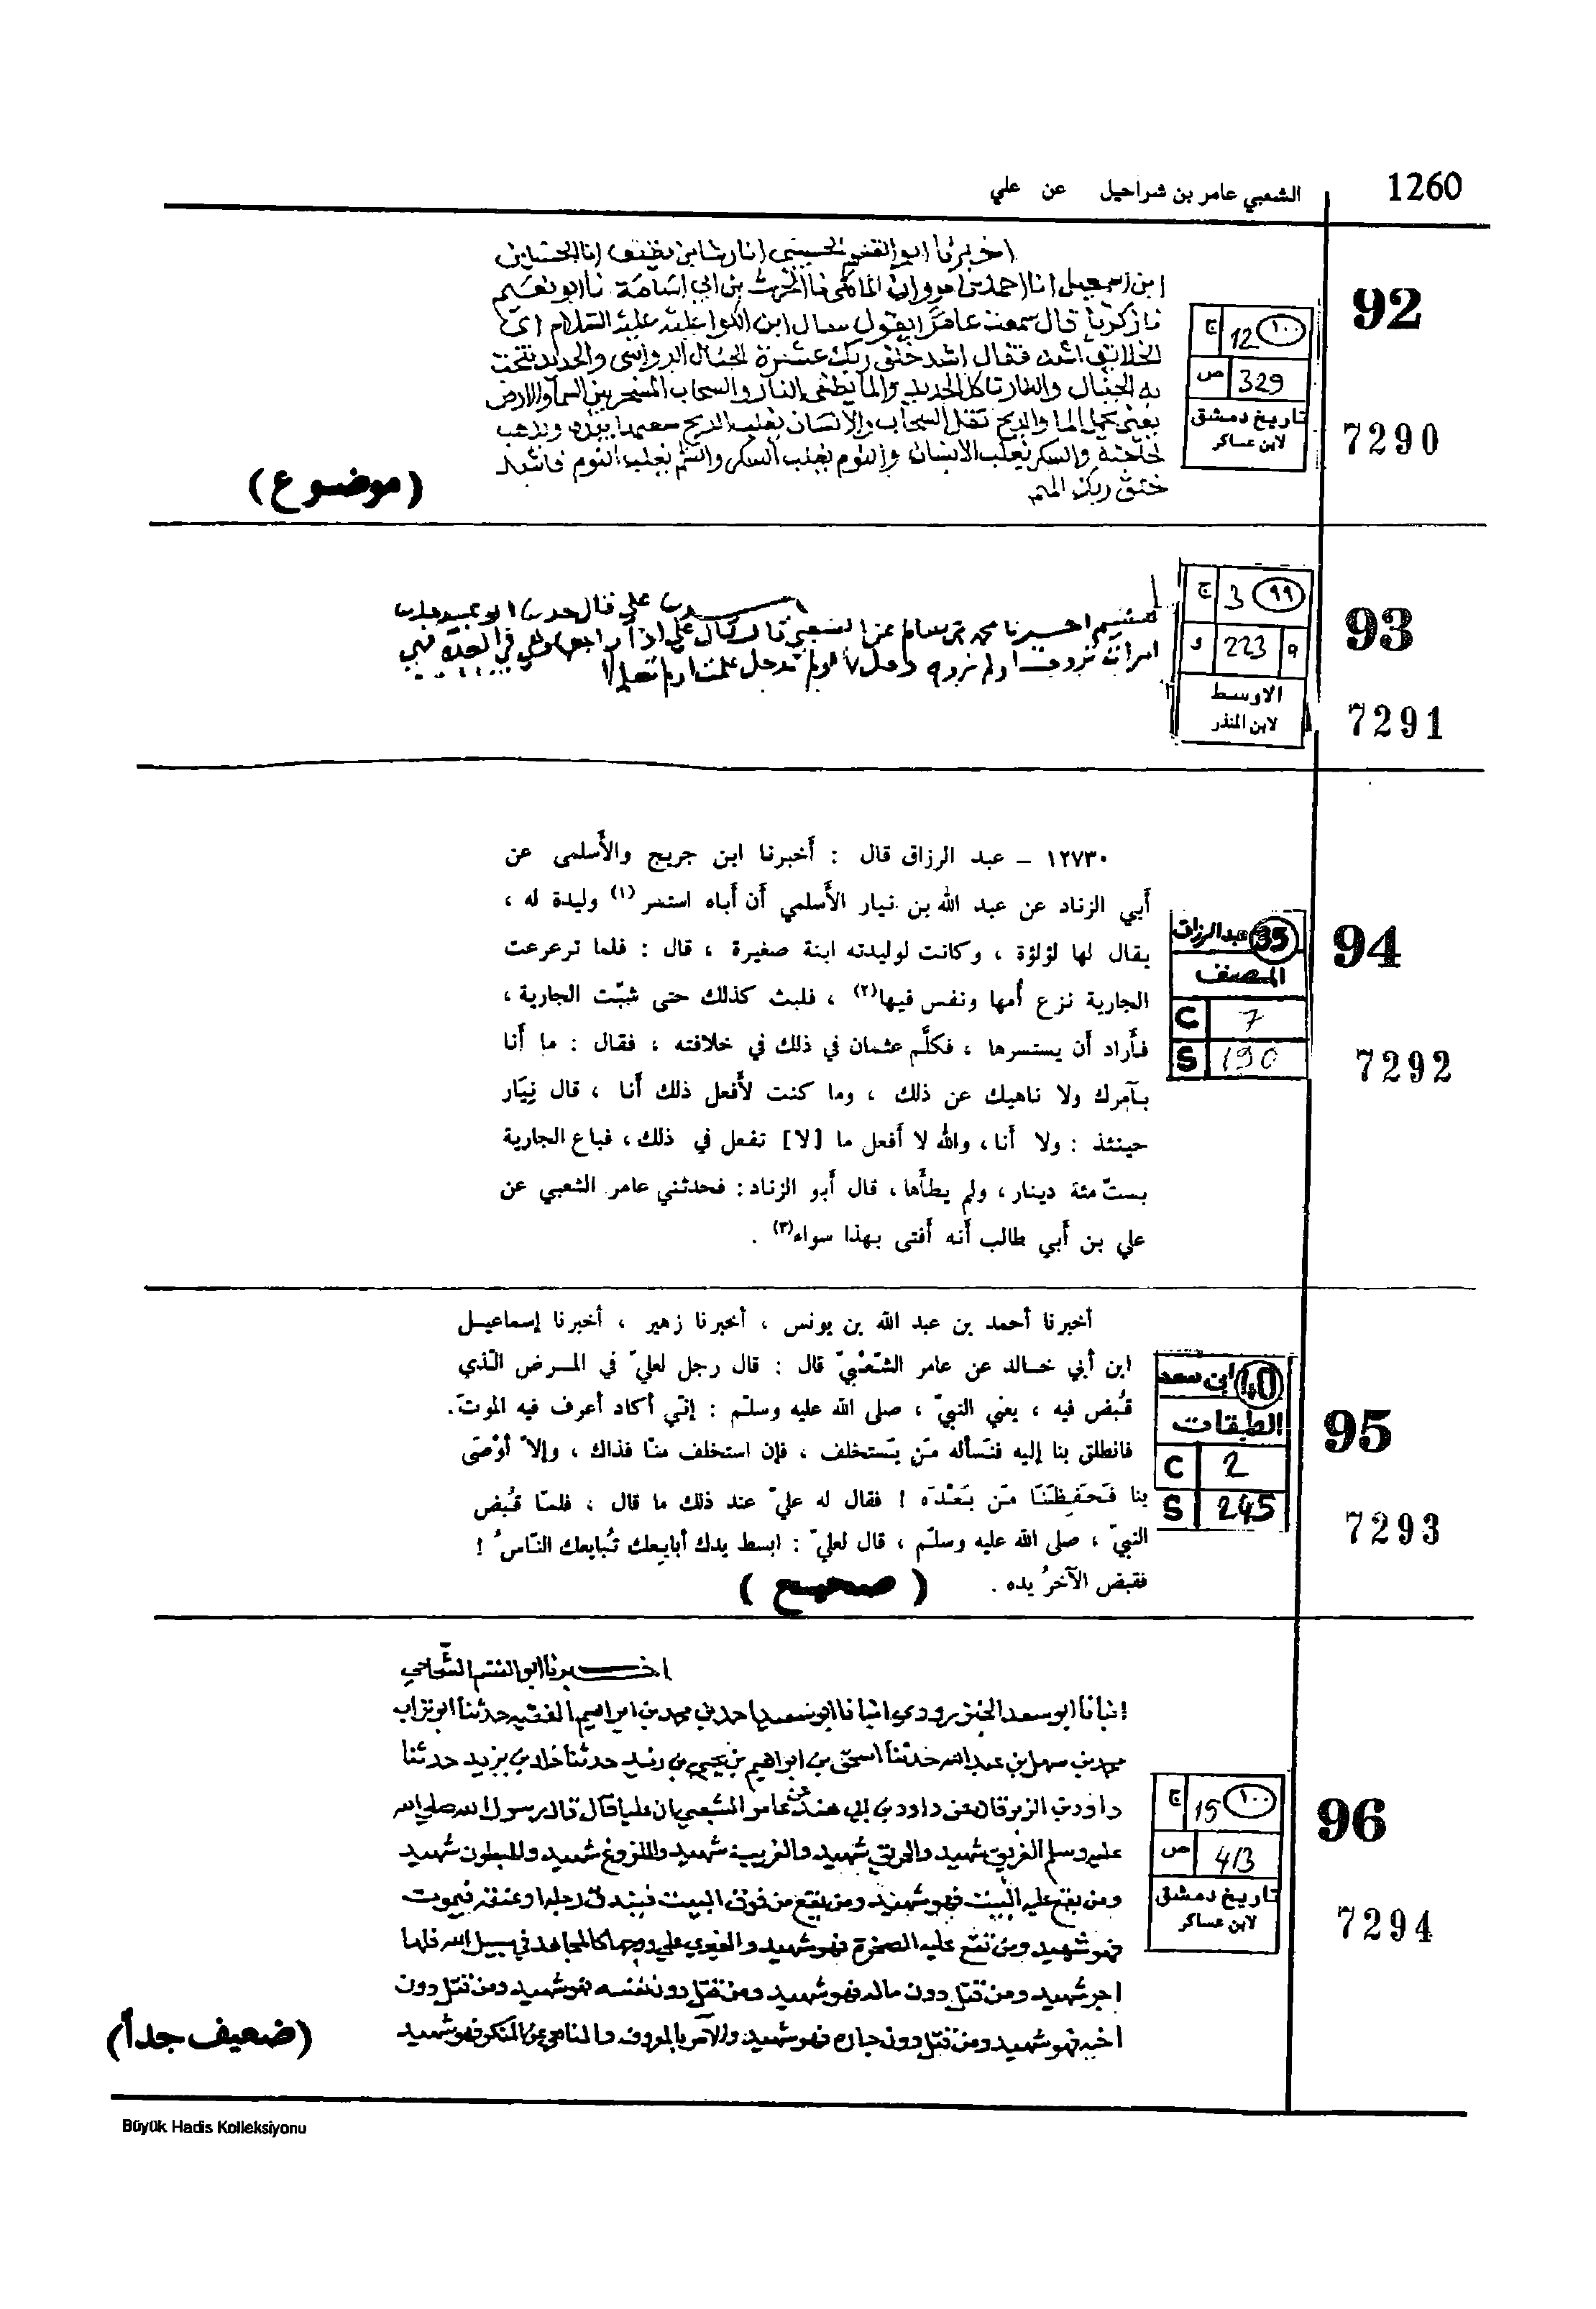 1260
الشعبي عامر بن شراحيل عن علي
92
7290
ج 12 ١٠٠
ص 329
تاريخ دمشق
لابن عساكر
اخبرنا ابو القسم الحسيني انا رشا بن نظيف انا الحسن بن
ابن اسمعيل انا احمد بن مروان المالكي نا الحرث بن ابي اسامة نا ابو نعيم
نا زكريا قال سمعت عامرا يقول سال ابن الكوا عليه السلام اي
الخلائق اشد فقال اشد خلق ربك عشرة الجبال الرواسي والحديد تنحت
به الجبال والنار تاكل الحديد والما يطفي النار والسحاب المسخر بين السما والارض
يعني يحمل الما والريح تقل السحاب والانسان يغلب الريح بيده ويذهب
لحاجته والسكر يغلب الانسان والنوم يغلب السكر والهم يغلب النوم فاشد
خلق ربك الهم
(موضوع)
93
7291
ج 3 ٩٩
و 223 a
الاوسط
لابن المنذر
علي قال ابو عبيد
هشيم اخبرنا محمد بن سالم عن الشعبي قال قال علي في العدة فهي
امراته تزوجت او لم تزوج دخل بها او لم يدخل علمت او لم تعلم
94
7292
35 عبدالرزاق
المصنف
C 7
S 190
١٢٧٣٠ – عبد الرزاق قال : أخبرنا ابن جريج والأسلمي عن
أبي الزناد عن عبد الله بن نيار الأسلمي أن أباه استسر (١) وليدة له ،
يقال لها لؤلؤة ، وكانت لوليدته ابنة صغيرة ، قال : فلما ترعرعت
الجارية نزع أمها ونفس فيها(٢) ، فلبث كذلك حتى شبّت الجارية ،
فأراد أن يستسرها ، فكلَّم عثمان في ذلك في خلافته ، فقال : ما أنا
بآمرك ولا ناهيك عن ذلك ، وما كنت لأفعل ذلك أنا ، قال نِيَار
حينئذ : ولا أنا، والله لا أفعل ما [لا] تفعل في ذلك، فباع الجارية
بستّ مئة دينار، ولم يطأها، قال أبو الزناد: فحدثني عامر الشعبي عن
علي بن أبي طالب أنه أفتى بهذا سواء(٣) .
95
7293
40 ابن سعد
الطبقات
C 2
S 245
أخبرنا أحمد بن عبد الله بن يونس ، أخبرنا زهير ، أخبرنا إسماعيل
ابن أبي خالد عن عامر الشّعْبيّ قال : قال رجل لعليّ في المرض الّذي
قُبض فيه ، يعني النبيّ ، صلى الله عليه وسلّم : إنّي أكاد أعرف فيه الموتَ.
فانطلق بنا إليه فنَسأله مَن يَستخلف ، فإن استخلف منّا فذاك ، وإلاّ أوْصَى
بنا فَحَفِظَنَا مَن بَعْدَه ! فقال له عليّ عند ذلك ما قال ، فلمّا قُبض
النبيّ ، صلى الله عليه وسلّم ، قال لعليّ : ابسط يدك أبايعك تُبايعك النّاسُ !
فقبض الآخرُ يده .
( صحيح )
96
7294
ج 15 ١٠٠
ص 413
تاريخ دمشق
لابن عساكر
اخبرنا ابو القسم الشحامي
انبانا ابو سعد الجنزرودي انبانا ابو سعيد احمد بن محمد بن ابراهيم الفقيه حدثنا ابو تراب
محمد بن سهل بن عبدالله حدثنا اسحق بن ابراهيم بن يحيى بن حدثنا خالد بن يزيد حدثنا
داود بن الزبرقان عن داود بن ابي هند عن عامر الشعبي ان عليا قال قال رسول الله صلى الله
عليه وسلم الغريق شهيد والحريق شهيد والغريب شهيد والملدوغ شهيد والمبطون شهيد
ومن يقع عليه البيت فهو شهيد ومن يقع من فوق البيت فيندق رجله او عنقه فيموت
فهو شهيد ومن تقع عليه الصخرة فهو شهيد والغيرى على زوجها كالمجاهد في سبيل الله فلها
اجر شهيد ومن قتل دون ماله فهو شهيد ومن قتل دون نفسه فهو شهيد ومن قتل دون
اخيه فهو شهيد ومن قتل دون جاره فهو شهيد والآمر بالمعروف والناهي عن المنكر فهو شهيد
(ضعيف جداً)
Büyük Hadis Kolleksiyonu